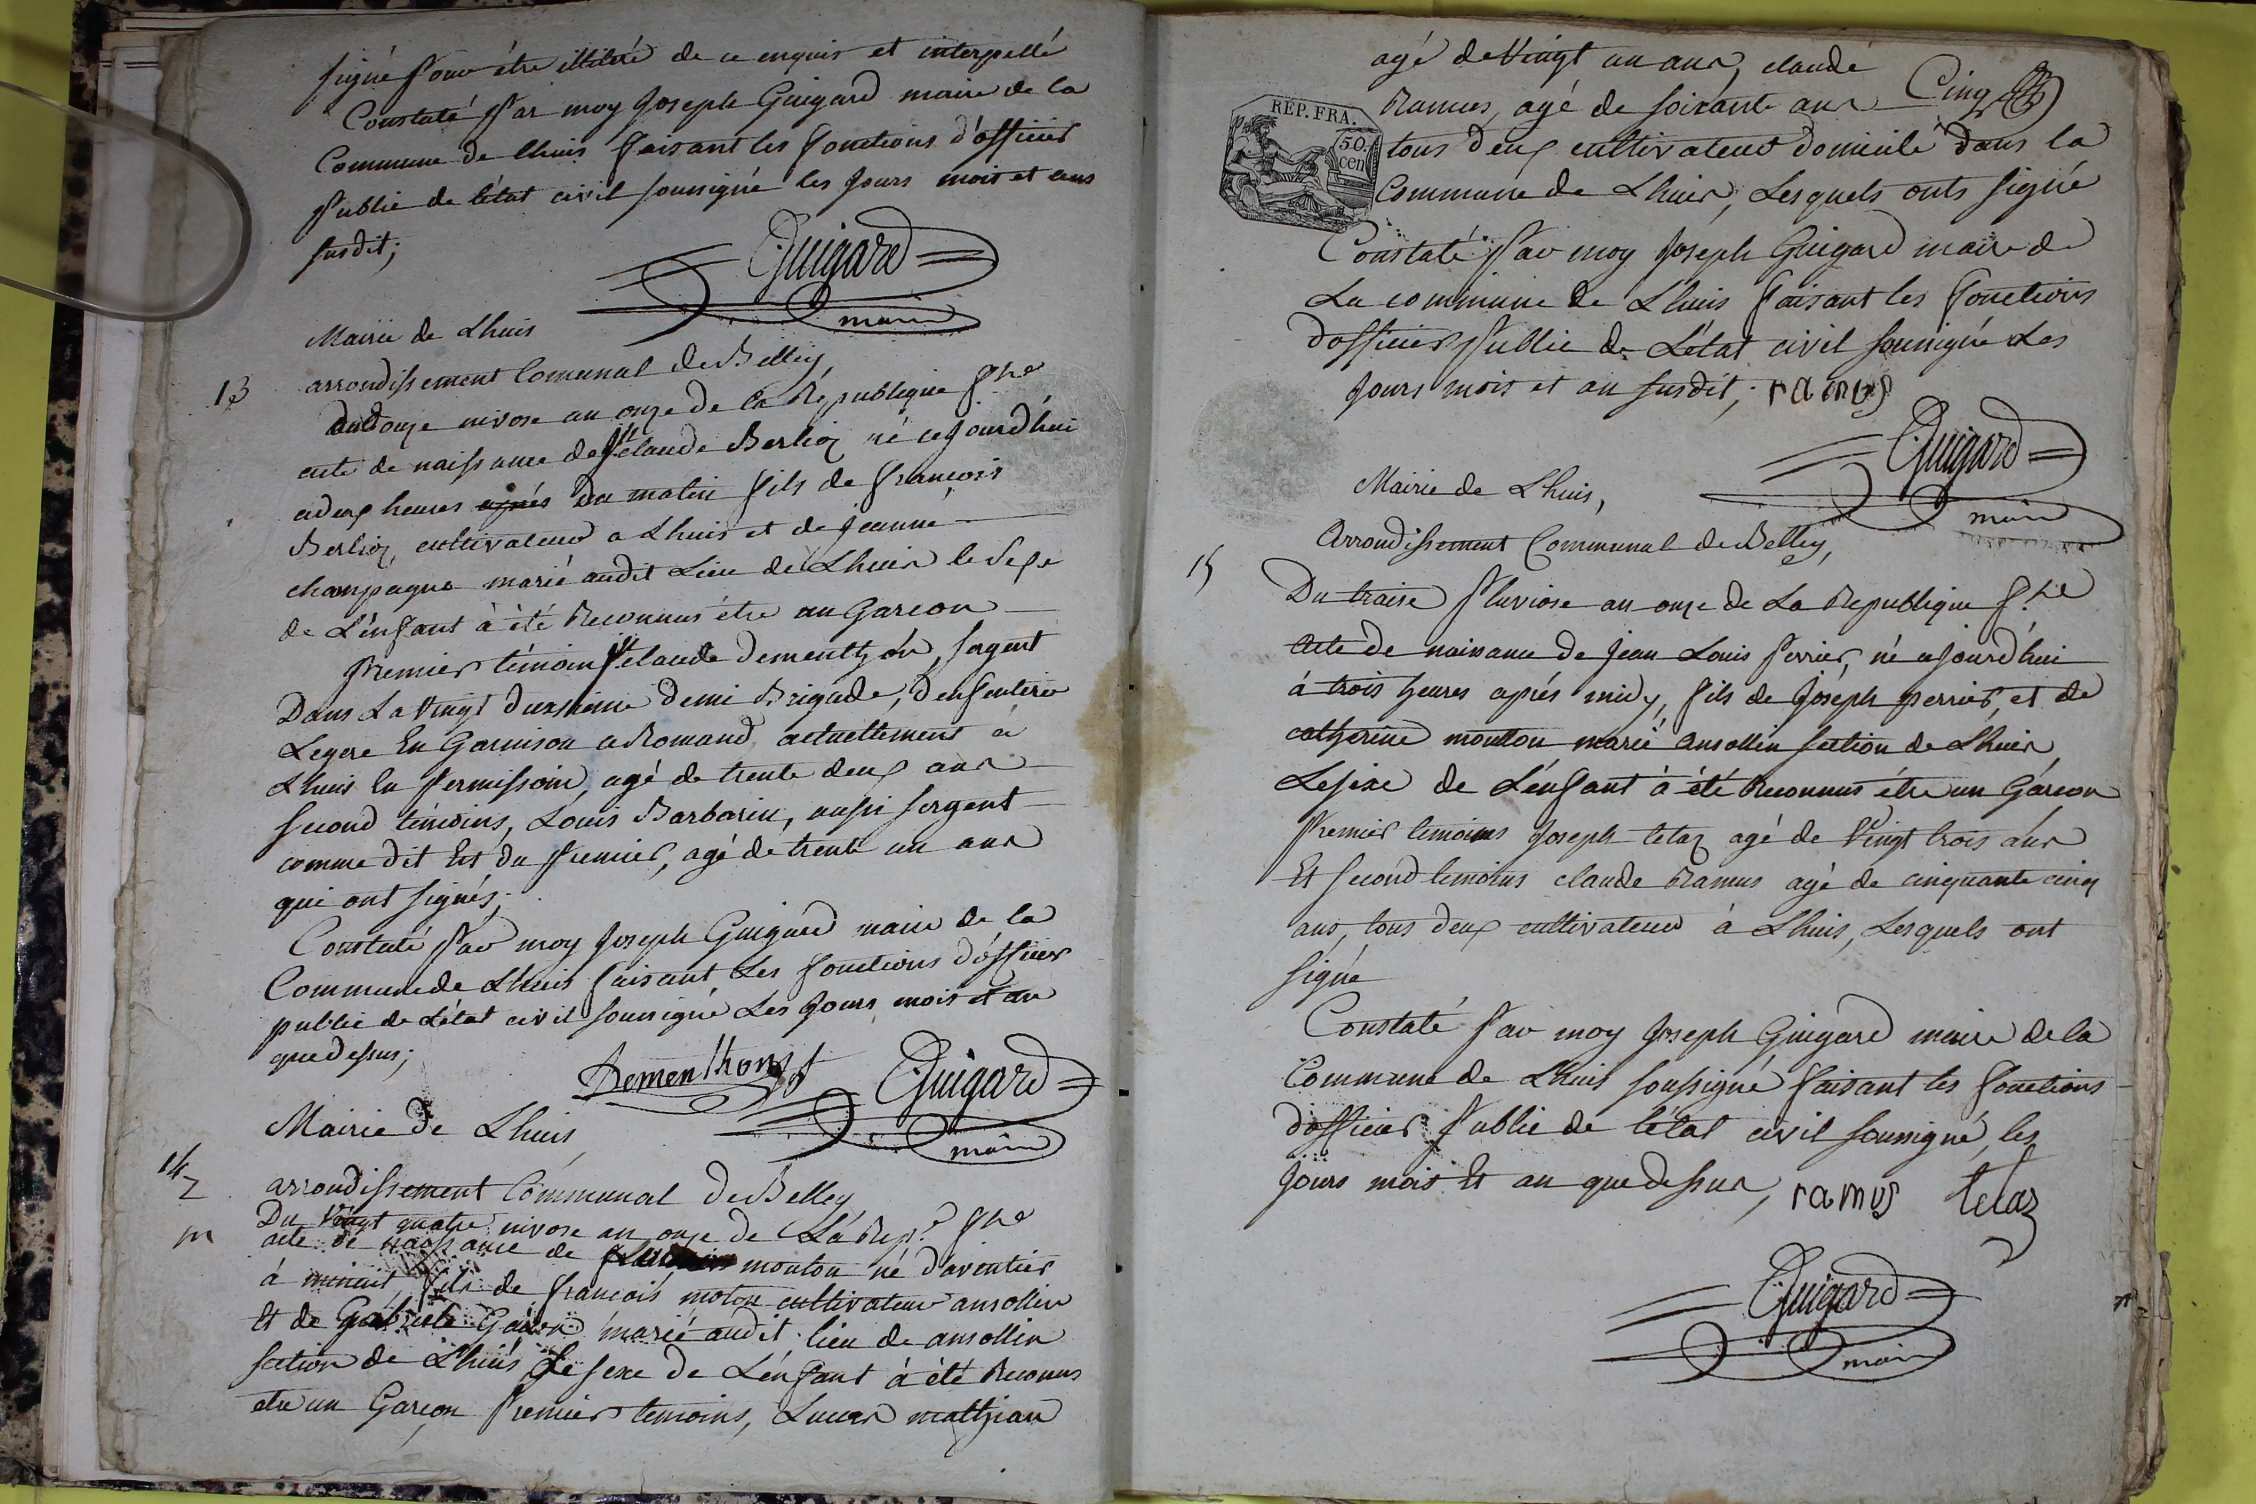 signé pour être illitéré de ce enquis et interpellé
Constaté Par moy Joseph Guigard maire de la
Commune de lhuis faisant les fonctions d'officier
Public de létat civil soussigné les Jours mois et ans
susdit;
Guigard
maire
Mairie de Lhuis
13
arrondissement Comunal de Belley
du douze nivose an onze de la République f.se
acte de naissance de Jh claude Berlioz né ce jourd'hui
a deux heures après du matin fils de françois
Berlioz, cultivateur a Lhuis et de jeanne
champagne marié audit Lieu de Lhuis le sexe
de L'enfant à été Reconnus être un Garcon
Premier témoin Jh claude dementhon, sergent
Dans La vingt deuxieme demi Brigade, d'enfenterie
Legere En Garnison a Romand actuellement à
Lhuis En Permission, agé de trente deux ans
second témoins, Louis Barbarin, aussi sergent
comme dit Est du Premier, agé de trente un ans
qui ont signés;
Constaté Par moy Joseph Guigard maire de la
Commune de Lhuis faisant Les fonctions d'officier
public de L'état civil soussigné Les Jours mois et an
que dessus;
Dementhon sgt
Guigard
maire
Mairie de Lhuis
14
arrondissement Communal de Belley
Du Vingt quatre nivose an onze de La Rep.e f.se
acte de naissance de mouton né d'aventier
à minuit, fils de françois moton cultivateur ansollin
Et de Gabriele marié audit lieu de ansollin
section de Lhuis Le sexe de L'enfant à été Reconnus
etre un Garçon Premier temoins, Lucas mathian
agé de Vingt un ans, claude
Cinq
REP. FRA.
50
cen
Ramus, agé de soixante ans
tous deux cultivateur domicilé dans la
Commune de Lhuis, Lesquels onts signé
Constaté Par moy Joseph Guigard maire de
La commune de Lhuis faisant les fonctions
d'officier Public de L'état civil soussigné Les
Jours mois et an susdit; ramus
Guigard
maire
Mairie de Lhuis,
Arrondissement Communal de Belley,
15
Du traise Pluviose an onze de La Republique f.se
Acte de naisance de Jean Louis Perrier, né ce jourd'hui
à trois heures après midy, fils de Joseph perrier, et de
catherine mouton marié ansollin section de Lhuis
Le sexe de L'enfant à été Reconnus être un Garcon
Premier temoins Joseph tetaz agé de Vingt trois ans
Et second temoins claude Ramus agé de cinquante cinq
ans, tous deux cultivateur à Lhuis, Lesquels ont
signé
Constaté Par moy Joseph Guigard maire de la
Commune de Lhuis soussigné faisant les fonctions
d'officier Public de l'état civil soussigné, les
Jours mois Et an que dessus, ramus tetaz
Guigard
maire